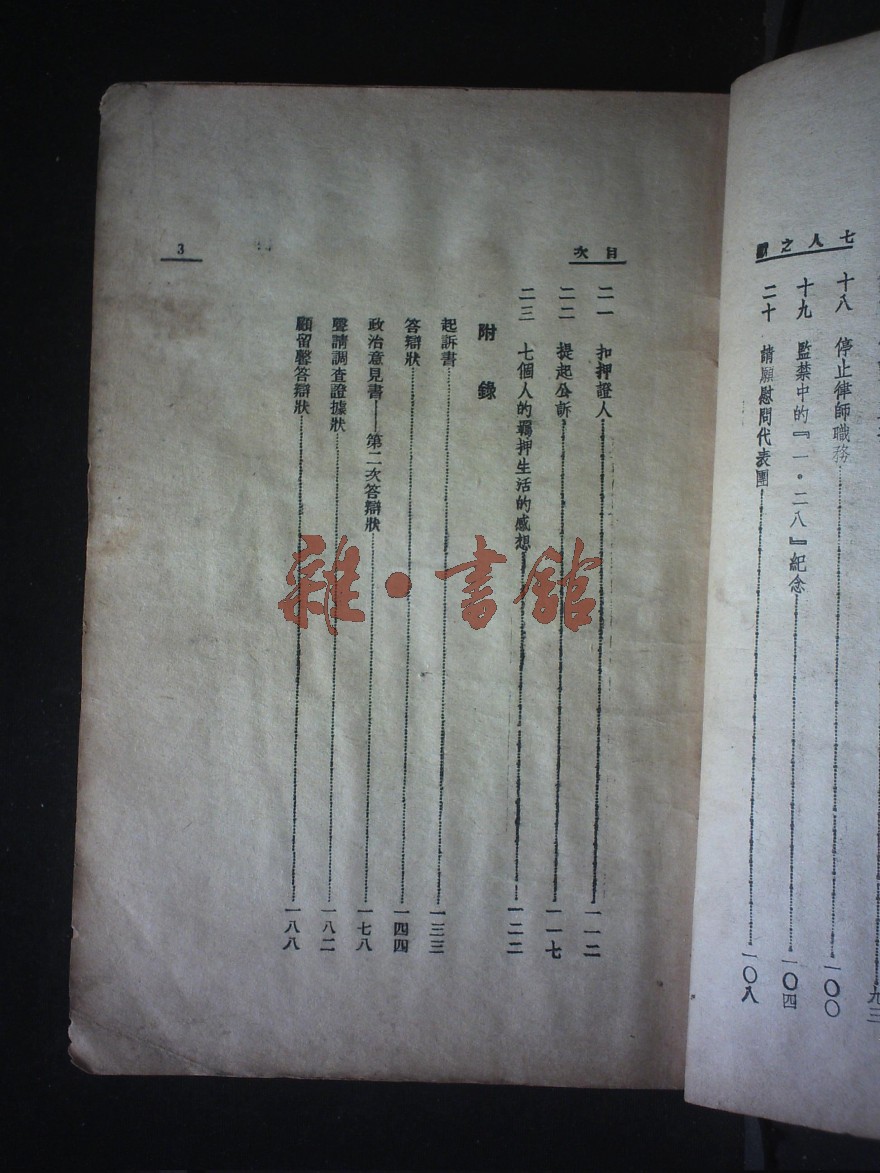 七人之獄
十八 停止律師職務 一〇〇
十九 監禁中的『一・二八』紀念 一〇四
二十 請願慰問代表團 一〇八
目次
二一 扣押證人 一一二
二二 提起公訴 一一七
二三 七個人的羈押生活的感想 一二二
附錄
起訴書 一三三
答辯狀 一四四
政治意見書——第二次答辯狀 一七八
聲請調查證據狀 一八二
顧留馨答辯狀 一八八
3
雜・書館